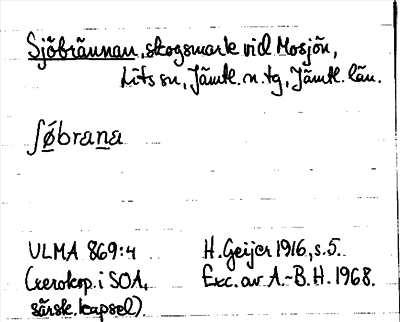 Sjöbrännan, skogsmark vid Mosjön,
Lits sn, Jämtl. n. tg, Jämtl. län.
ʃøbrana
ULMA 869:4
H. Geijer 1916, s. 5.
(xerokop. i SOA,
Exc. av A.-B. H. 1968.
särsk. kapsel)